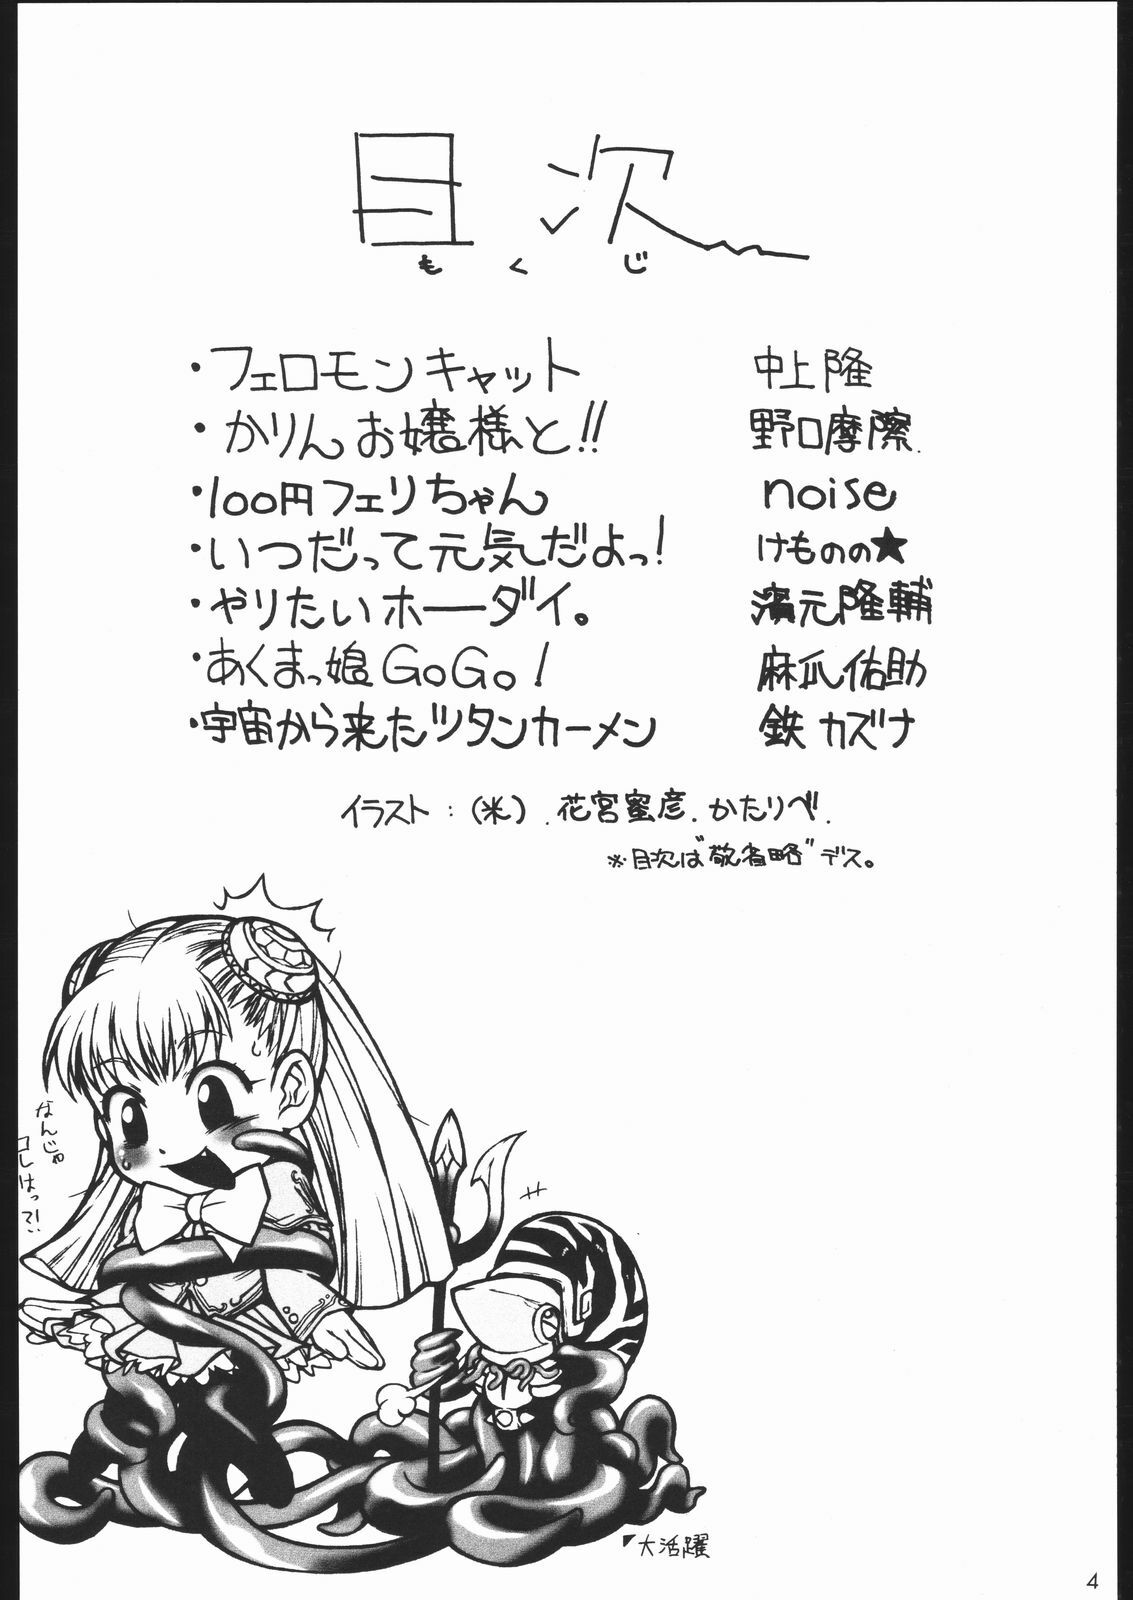 目次
もくじ
・フェロモンキャット 中上隆
・かりんお嬢様と!! 野口摩擦.
・100円フェリちゃん noise
・いつだって元気だよっ! けものの★
・やりたいホーダイ。 濱元隆輔
・あくまっ娘GoGo! 麻爪佑助
・宇宙から来たツタンカーメン 鉄カズナ
イラスト:(米).花宮蜜彦.かたりべ.
※目次は"敬省略"デス。
なんじゃ
コレはって!
大活躍
4